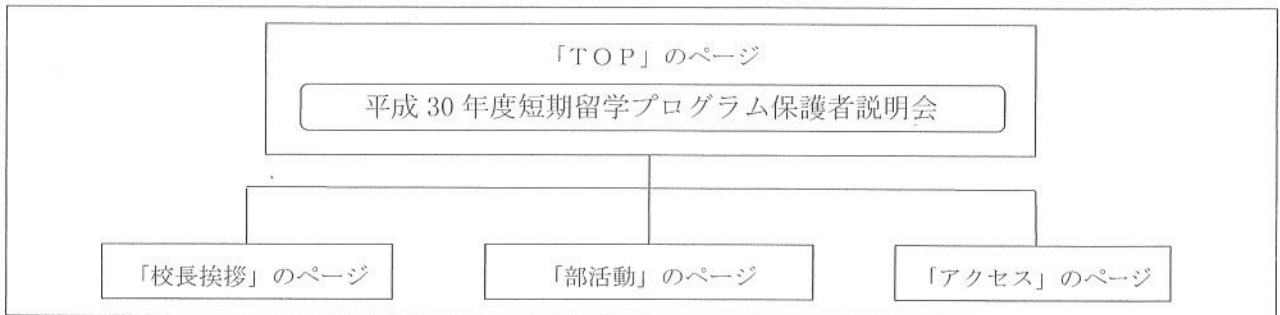 「TOP」のページ
平成 30 年度短期留学プログラム保護者説明会
「校長挨拶」のページ
「部活動」のページ
「アクセス」のページ